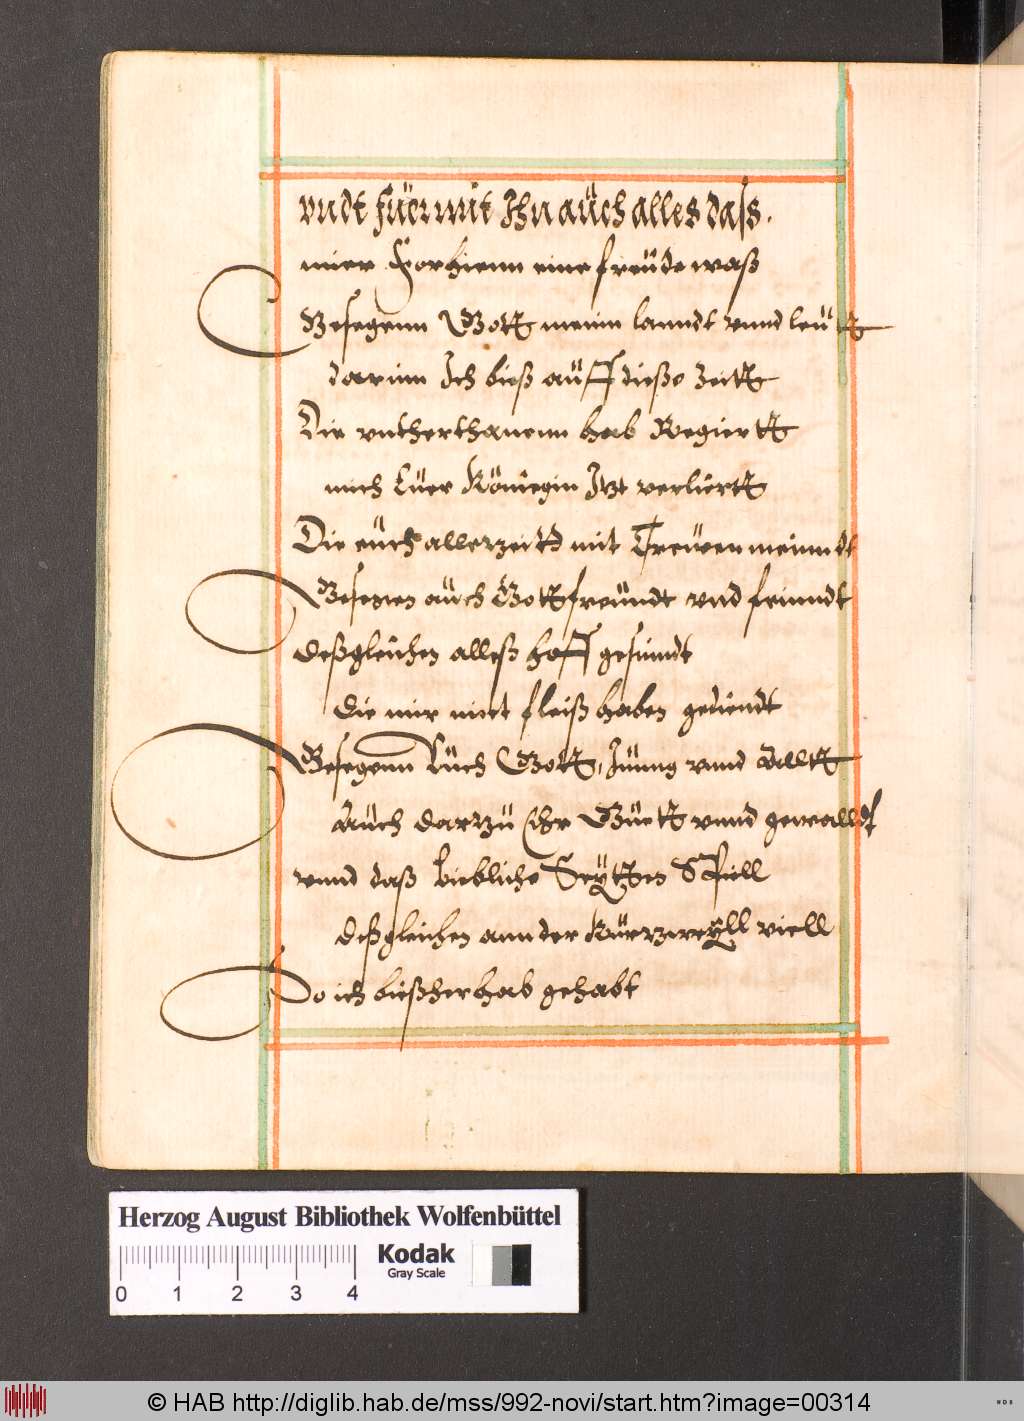 vndt füer mit Ihn aüch alles dass.
mier Forhienn eine freüde waß
Gesegenn Gott meinn lanndt vnnd leütt
darinn Ich bieß aüff dieße Zeitt
Die vntherthanenn hab Regiertt
mich Eüer Köniegin Itzt verliertt
Die eüch allerzeitt mit Treüen meinndt
Gesegen aüch Gott freündt vnd feinndt
deßgleichen alleß hoff gesinndt
die mir mitt fleiß haben gediendt
Gesegenn Eüch Gott, Jüng vnnd Alltt
Aüch darzü Ihr Güett vnnd gewalldt
vnnd daß liebliche Seytten Spiell
deßgleichen annder Kürzweyll viell
So ich bießher hab gehabt
Herzog August Bibliothek Wolfenbüttel
Kodak
Gray Scale
0 1 2 3 4
© HAB http://diglib.hab.de/mss/992-novi/start.htm?image=00314